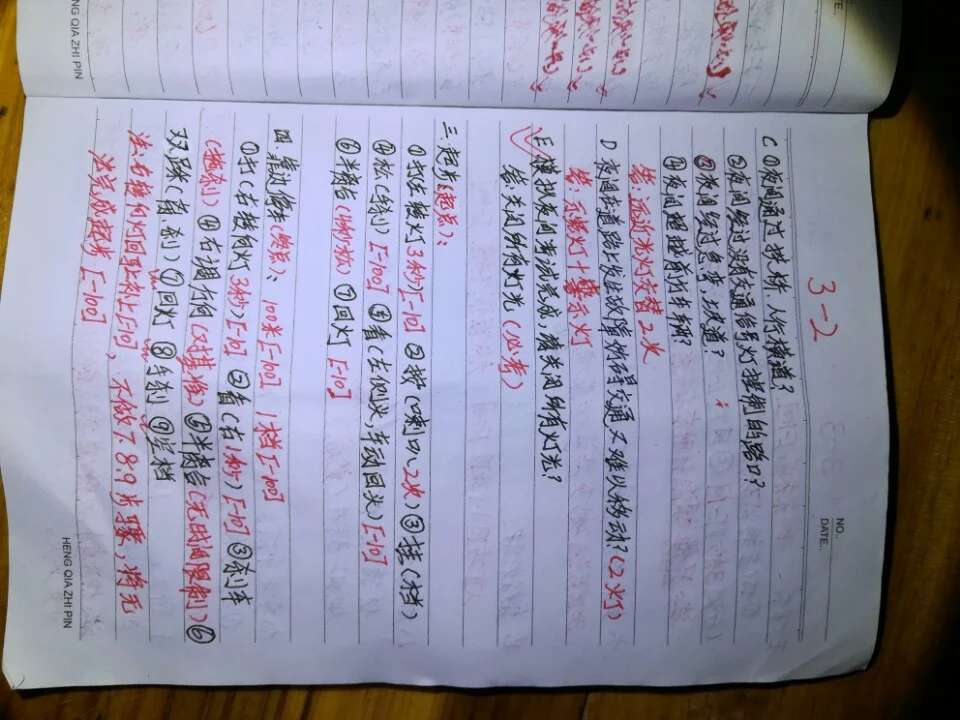 3-2
NO.
DATE.
C ①夜间通过拱桥、人行横道?
②夜间经过没有交通信号灯控制的路口?
③夜间经过急弯,坡道?
④夜间照越前方车辆?
答:远近光灯交替2次
D 夜间在道路上发生故障妨碍交通又难以移动?(2灯)
答:示燃灯+警示灯
E.模拟夜间考试完成,请关闭所有灯光?
答:关闭所有灯光(必考)
三.起步(起点):
①打左转灯3秒[-10] ②按(喇叭、2次)③挂(1档)
④松(手刹)[-100] ⑤看(左侧头,车动回头)[-10]
⑥半离合(1秒数) ⑦回灯[-10]
四.靠边停车(终点):100米[-100] 1档[-100]
①打(右转向灯3秒)[-10] ②看(右1秒)[-10] ③刹车
(轻刹) ④右调方向(对基准) ⑤半离合(无时间限制)⑥
双踩(离刹) ⑦回灯 ⑧手刹 ⑨空档
法:右转向灯回马补上[-10],不做7.8.9步骤,将无
法完成起步[-100]
HENG QIA ZHI PIN
NG QIA ZHI PIN
TE.